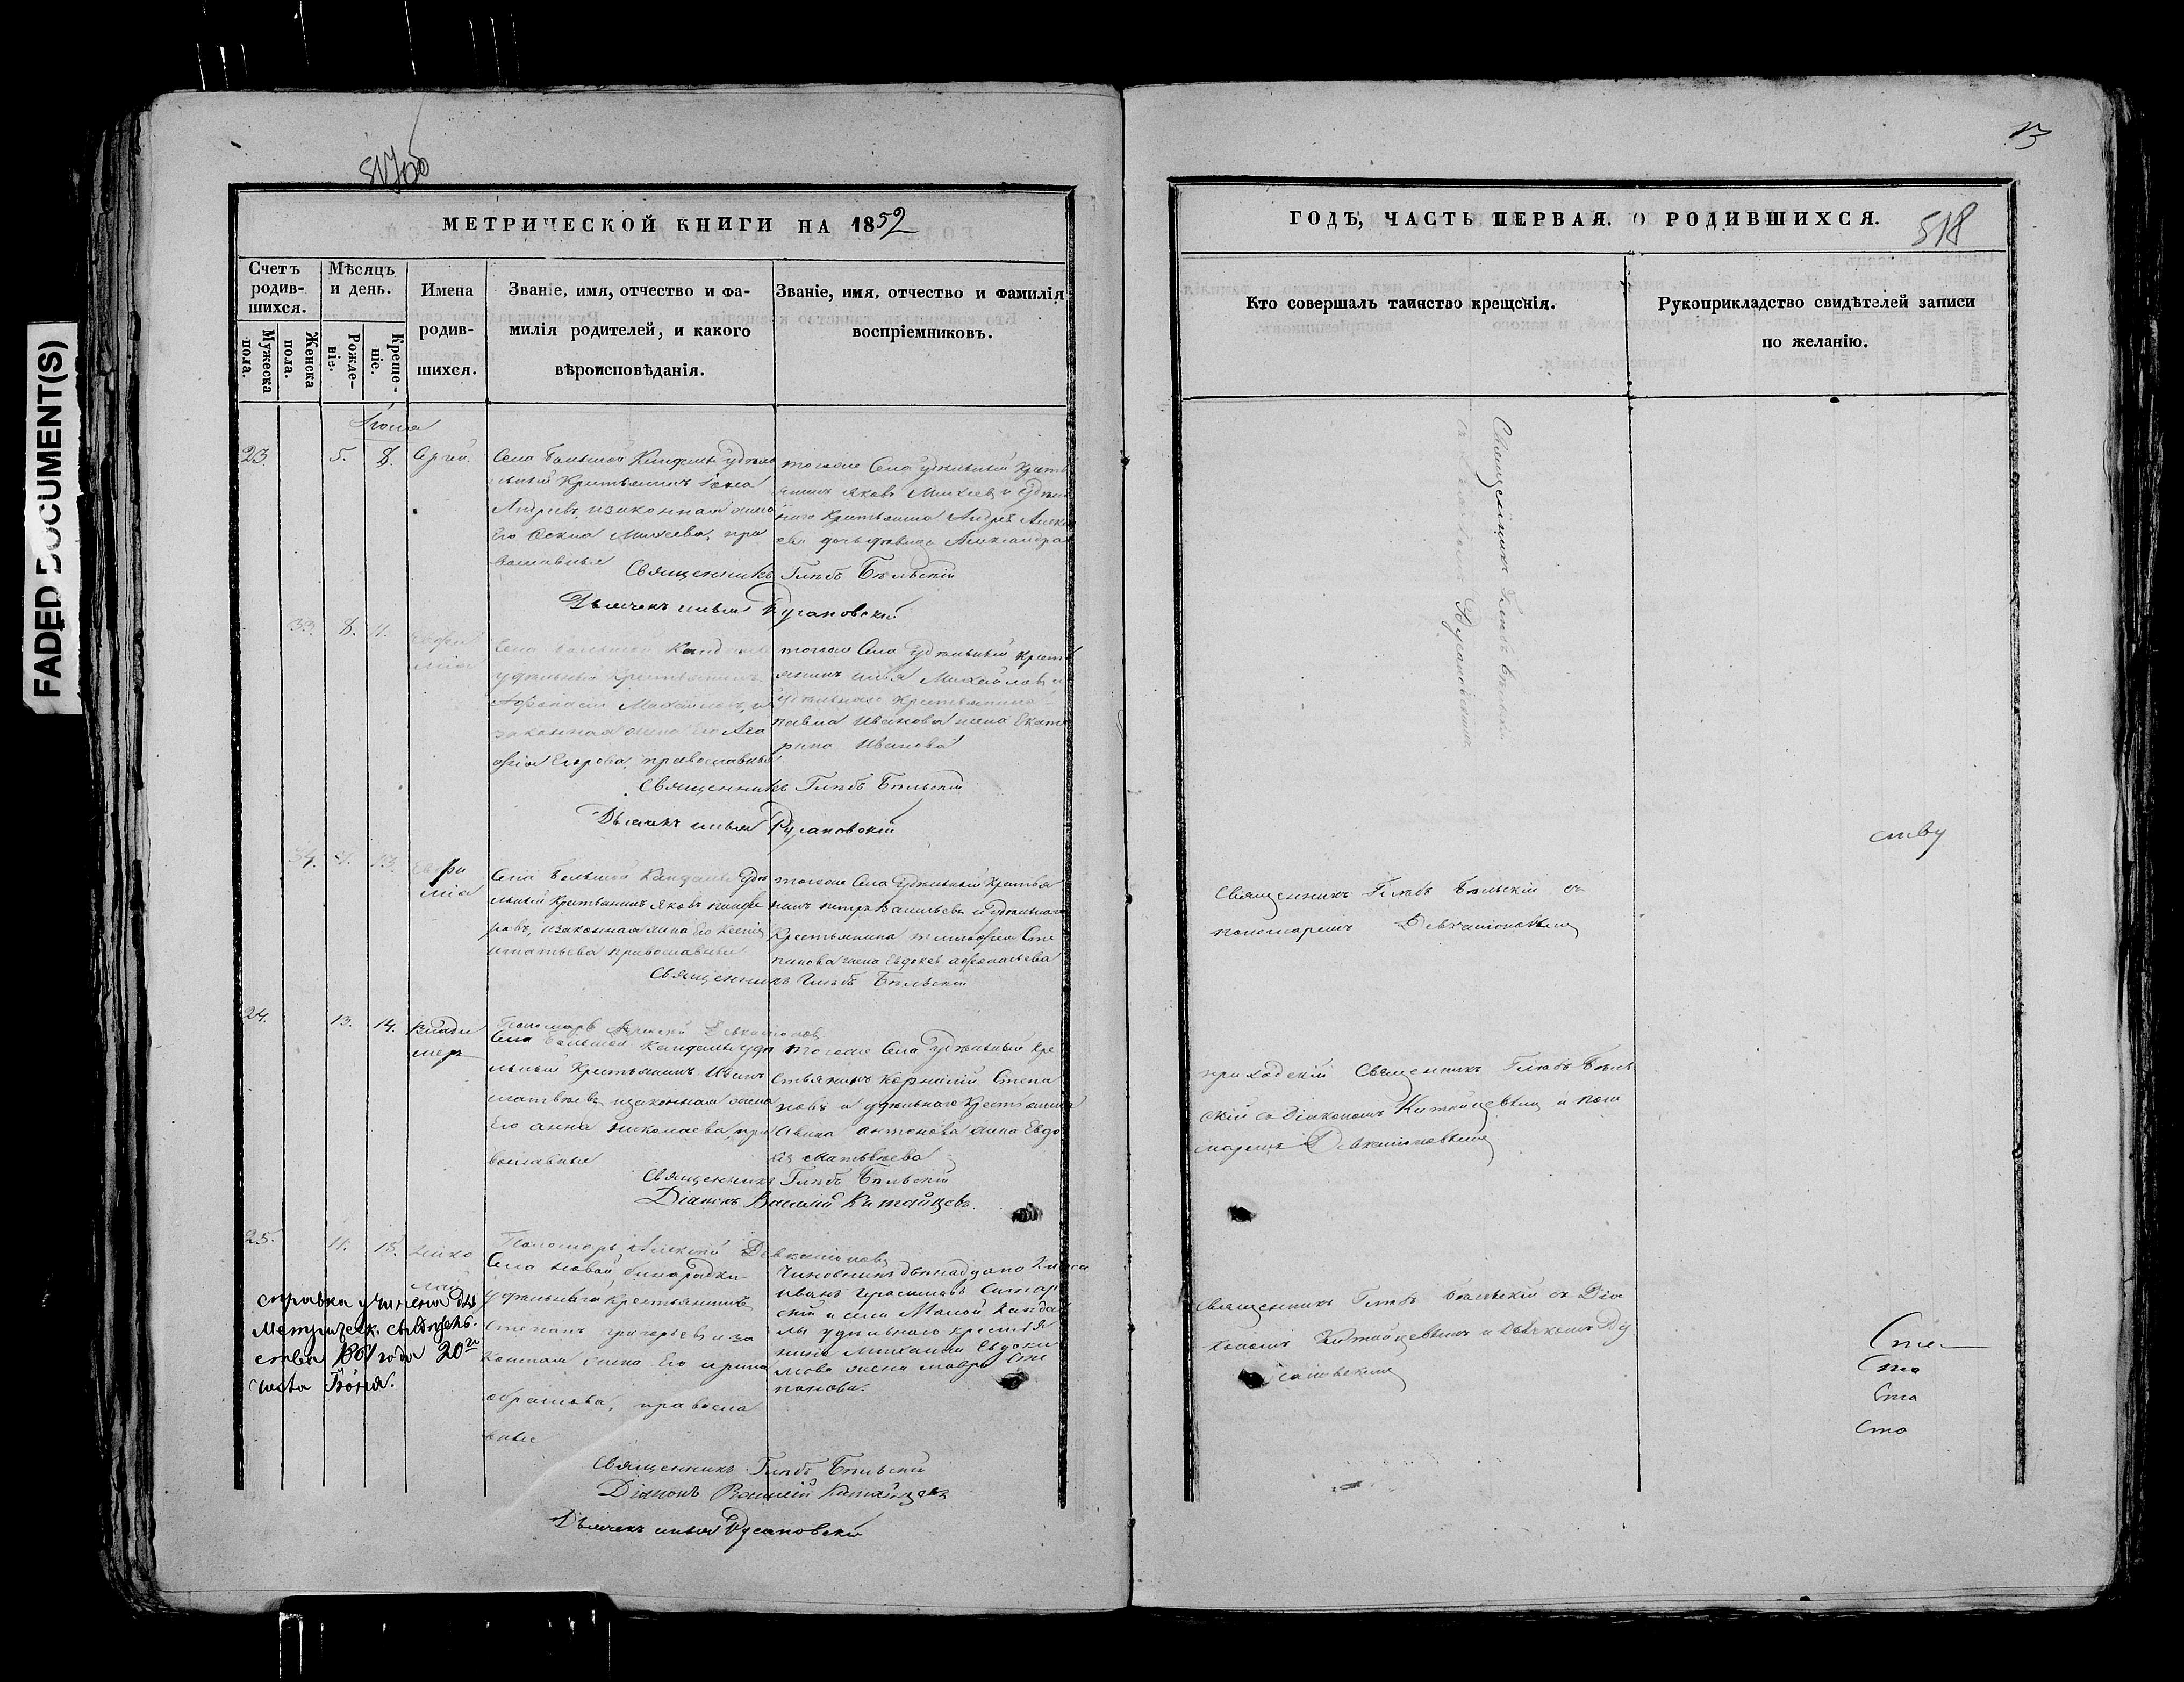 FADED DOCUMENT(S)
МЕТРИЧЕСКОЙ КНИГИ НА 1852
Счетъ родив-шихся.
Мужеска пола.
Женска пола.
Мѣсяцъ и день.
Рожде-нія.
Креще-нія.
Имена родив-шихся.
Званіе, имя, отчество и фа-
милія родителей, и какого
вѣроисповѣданія.
Званіе, имя, отчество и фамилія
воспріемниковъ.
Іюня
23. 5. 8. Сергій.
Села Большой Кандалы удѣль
ный Крестьянинъ
Андреевъ, и законная жена
его Михеева, пра
вославные
тогоже Села удѣльный Кресть
янинъ Яковъ Михеевъ и удѣль
наго Крестьянина Андрея Алексѣ
ева дочь Александра
Священникъ Глѣбъ Бѣльскій
Дьячекъ Илья Русановскій
33. 8. 11.
Села Большой Кандалы
удѣльный Крестьянинъ
Афанасій Михайловъ, и
законная жена его Ага
фія Егорова, православные
тогоже Села удѣльный Кресть
янинъ Илья Михайловъ и
удѣльнаго Крестьянина
Павла Иванова жена Екате
рина Иванова
Священникъ Глѣбъ Бѣльскій
Дьячекъ Илья Русановскій
34. 13. Евфи
мія
Села Большой Кандалы Удѣ
льный Крестьянинъ Яковъ
ровъ, и законная жена его Ксенія
Игнатьева православные
тогоже Села Удѣльный Крестья
нинъ Петръ Васильевъ и удѣльнаго
Крестьянина Тимофея Сте
панова жена Евдокія Афанасьева
Священникъ Глѣбъ Бѣльскій
Пономарь Алексѣй Девкалионовъ
24. 13. 14. Влади
меръ
Села Большой Кандалы удѣ
льный Крестьянинъ Иванъ
Матвѣевъ и законная жена
его Анна Николаева, пра
вославные
тогоже Села Удѣльный Кре
стьянинъ Корнилій Степа
новъ и удѣльнаго Крестьянина
Антонова жена Евдо
кія Матвѣева
Священникъ Глѣбъ Бѣльскій
Діаконъ Василій Китайцевъ
Пономарь Алексѣй Девкалионовъ
25. 11. 15. Нико
лай
Села Новой Бинарадки
удѣльнаго Крестьянина
Степанъ Григорьевъ и за
конная жена его Ирина
Абрамова, правосла
вные
Чиновникъ двѣнадцатаго Класса
Иванъ Герасимовъ
и села Малой Канда
лы удѣльнаго крестья
нина Михаила Евдоки
мова жена Мавра Сте
панова.
справка учинена для
Метрическ. свидѣтель-
ства года 20го
числа Іюня.
Священникъ Глѣбъ Бѣльскій
Діаконъ Василій Китайцевъ
Дьячекъ Илья Русановскій
13
ГОДЪ, ЧАСТЬ ПЕРВАЯ. О РОДИВШИХСЯ.
518
Кто совершалъ таинство крещенія.
Рукоприкладство свидѣтелей записи
по желанію.
Священникъ Глѣбъ Бѣльскій
съ Дьячкомъ Русановскимъ
ству
Священникъ Глѣбъ Бѣльскій съ
пономаремъ Девкалионовымъ
приходскій Священникъ Глѣбъ Бѣль
скій съ Діакономъ Китайцевымъ и поно
маремъ Девкалионовымъ
Священникъ Глѣбъ Бѣльскій съ Діа
кономъ Китайцевымъ и Дьячкомъ Ру
сановскимъ
Сте
Сто
Ста
Сто